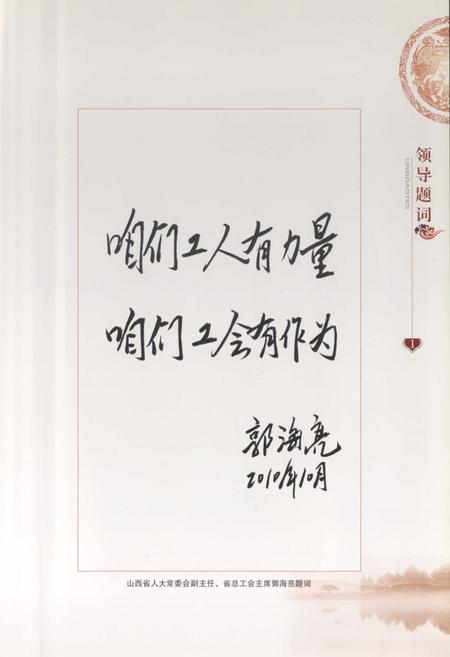 领导题词
LINGDAOTICI
1
咱们工人有力量
咱们工会有作为
郭海亮
2010年10月
山西省人大常委会副主任、省总工会主席郭海亮题词